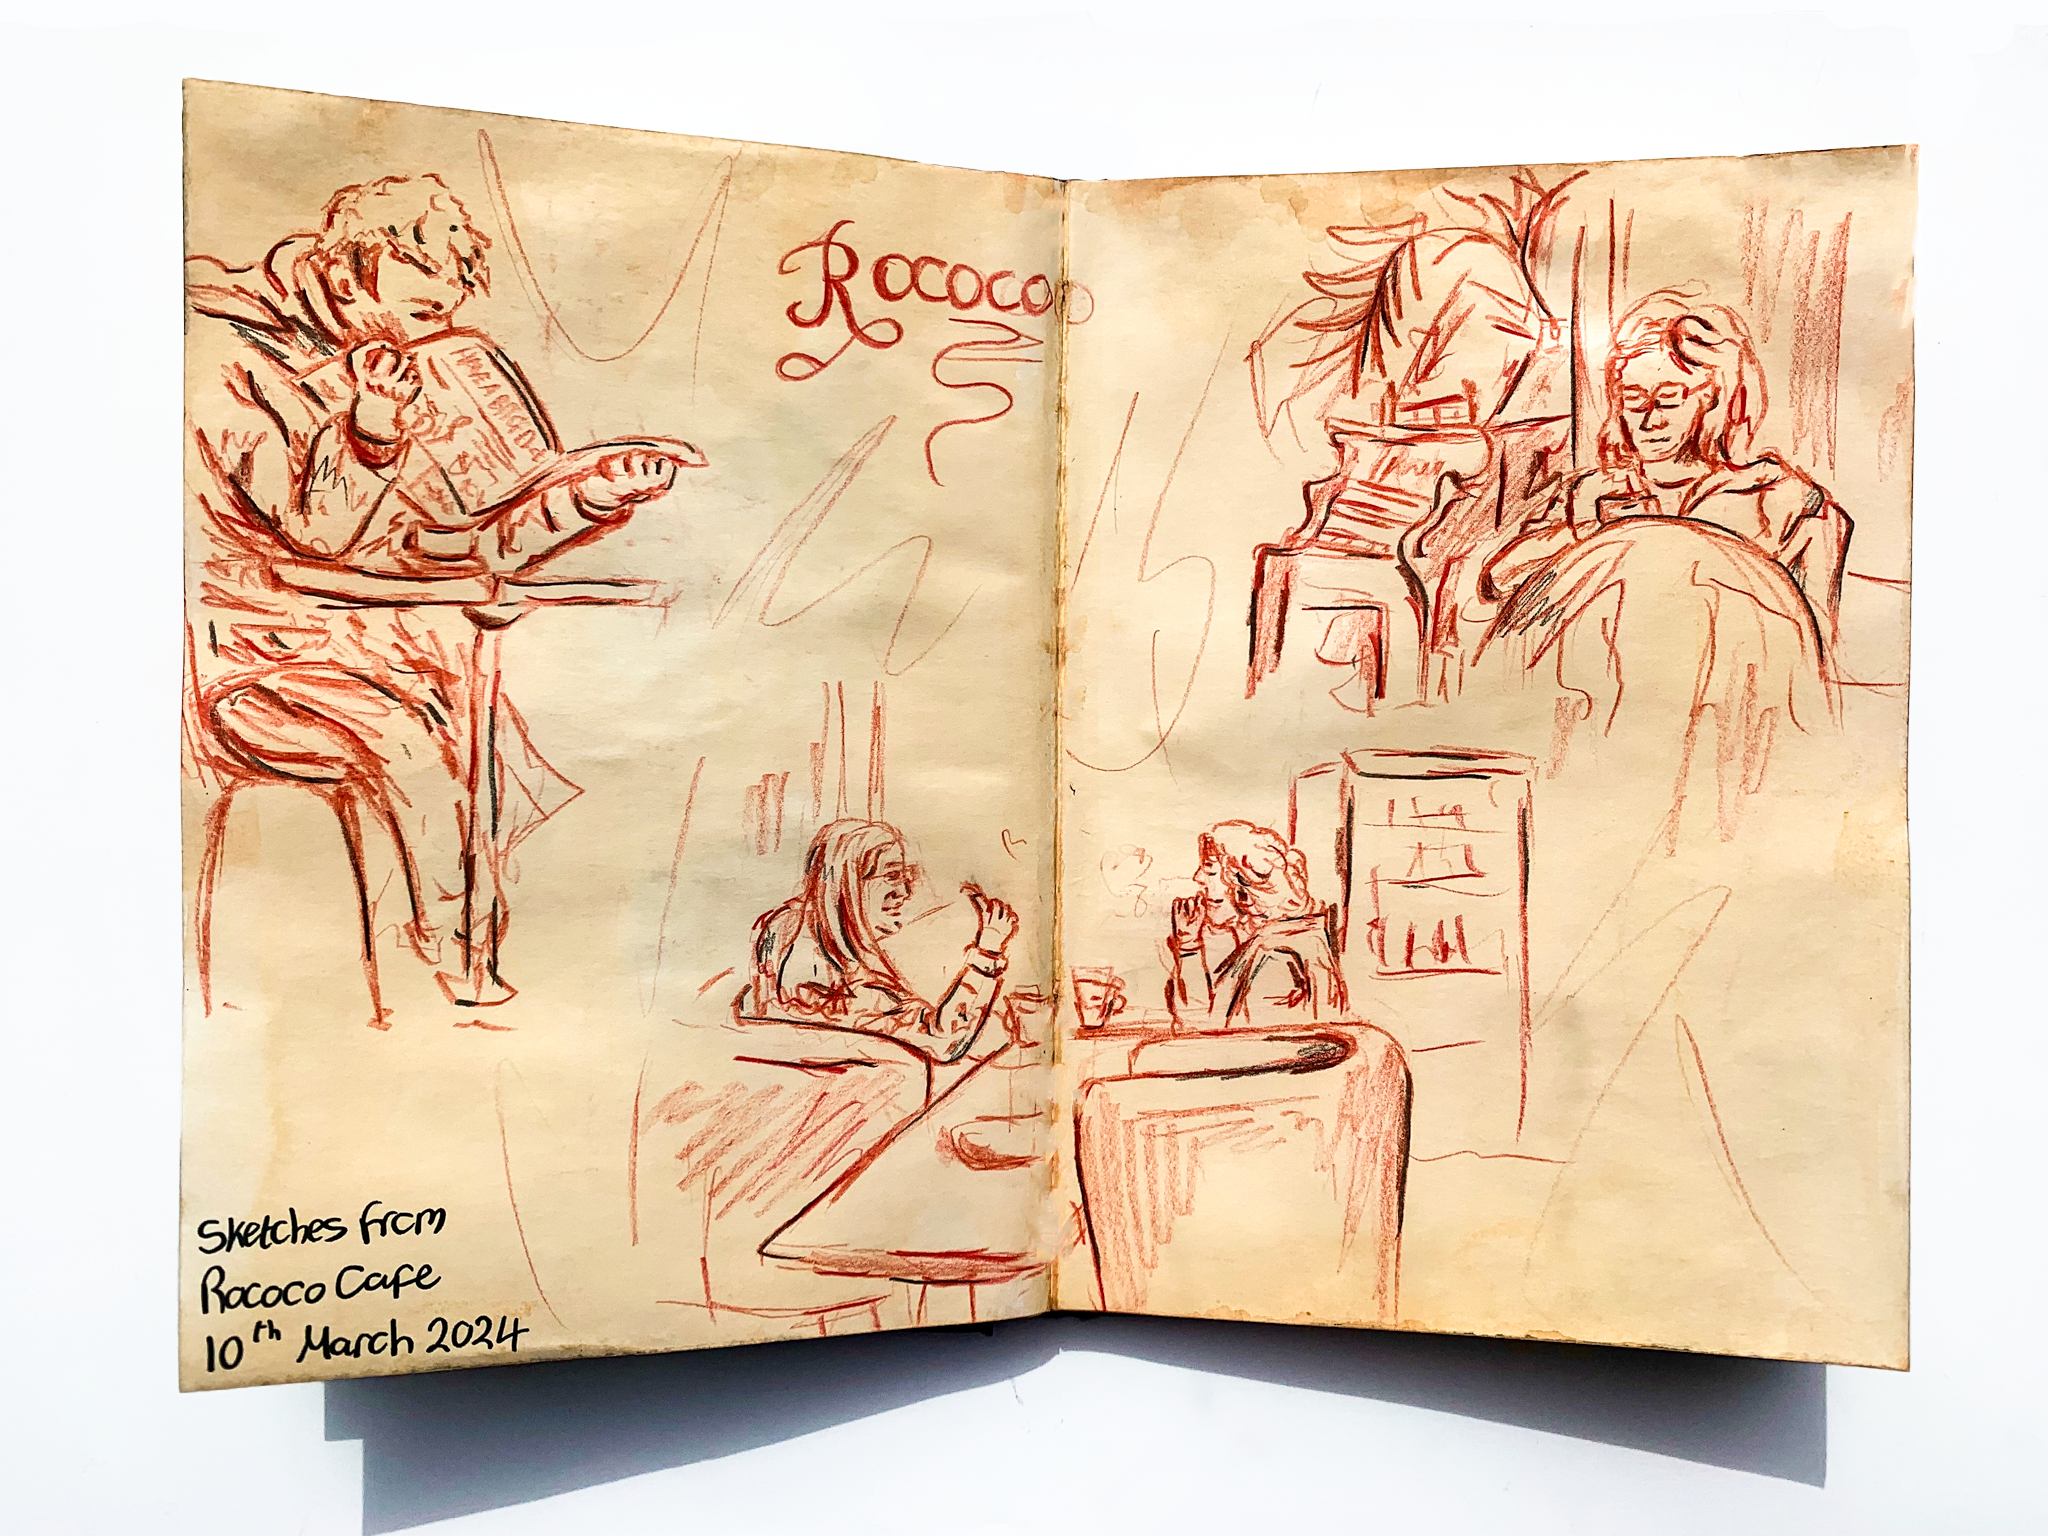 Rococo
Sketches from
Rococo Cafe
10th March 2024